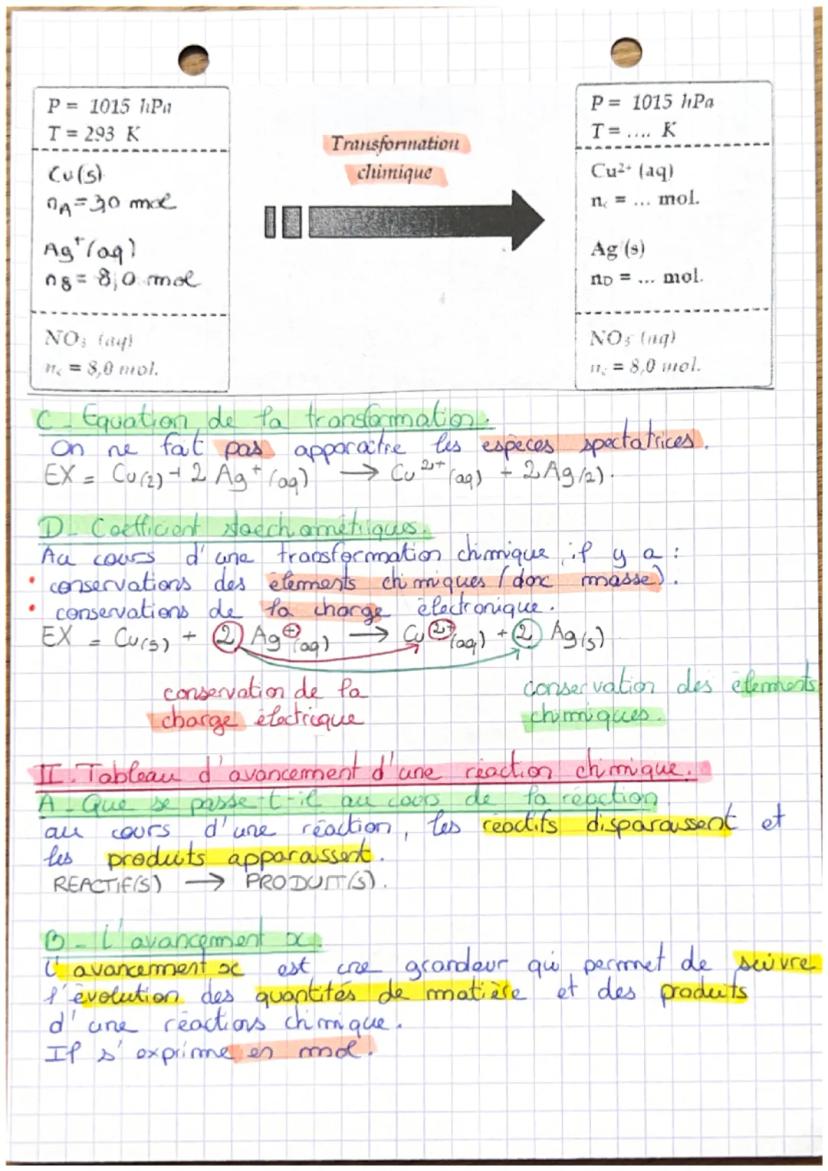 P = 1015 hPa
T = 293 K
Cu(s)
nA = 3,0 mol
Ag⁺(aq)
nB = 8,0 mol
NO₃ (aq)
n. = 8,0 mol.
Transformation
chimique
P = 1015 hPa
T = .... K
Cu²⁺ (aq)
n. = ... mol.
Ag (s)
nD = ... mol.
NO₃⁻ (aq)
n. = 8,0 mol.
C - Equation de la transformation.
On ne fait pas apparaitre les espèces spectatrices.
EX = Cu(2) + 2 Ag⁺(aq) → Cu²⁺(aq) + 2 Ag(2).
D - Coefficient stoechiométriques.
Au cours d'une transformation chimique, il y a :
• conservations des élements chimiques (donc masse).
• conservations de la charge électronique.
EX = Cu(s) + 2 Ag⁺(aq) → Cu²⁺(aq) + 2 Ag(s)
conservation de la
charge électrique
conservation des élements
chimiques.
II. Tableau d'avancement d'une réaction chimique.
A - Que se passe-t-il au cours de la réaction
au cours d'une réaction, les réactifs disparaissent et
les produits apparaissent.
REACTIF(S) → PRODUIT(S).
B - L'avancement x.
L'avancement x est une grandeur qui permet de suivre
l'évolution des quantités de matière et des produits
d'une réactions chimique.
Il s'exprime en mol.